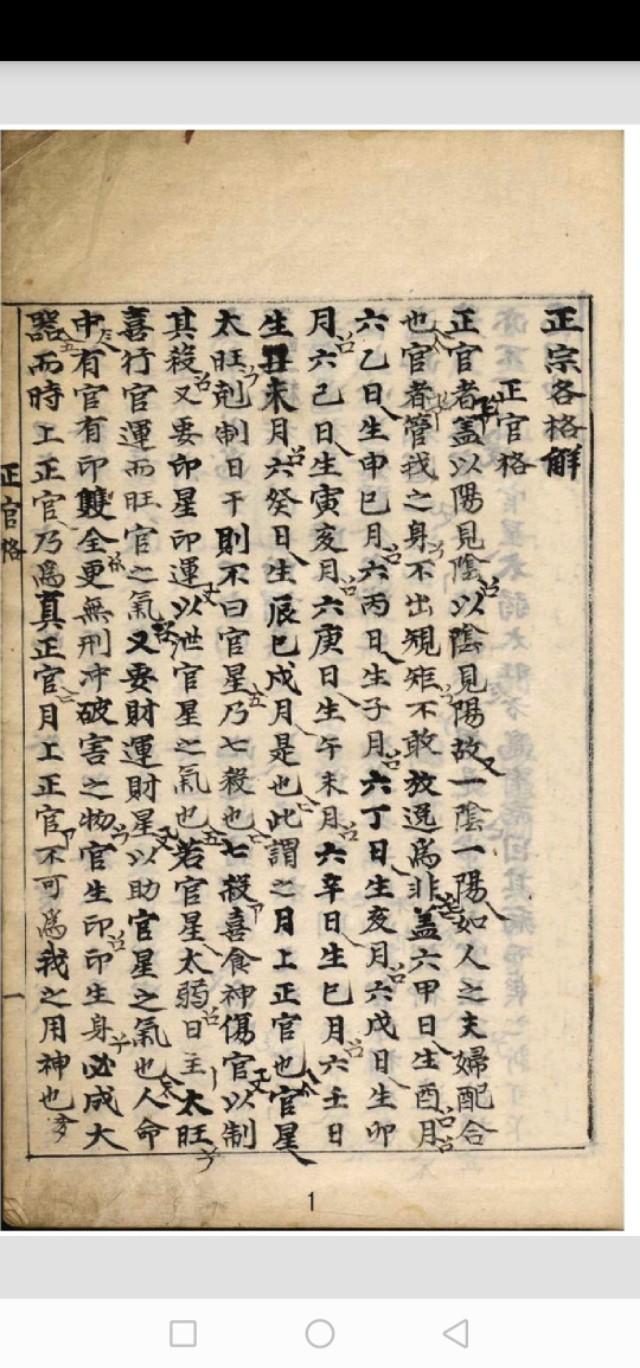 正宗各格解
正官格
正官者蓋以陽見陰以陰見陽故一陰一陽如人之夫婦配合
也官者管我之身不出規矩不敢放逸爲非蓋六甲日生酉月
六乙日生申巳月六丙日生子月六丁日生亥月六戊日生卯
月六己日生寅亥月六庚日生午未月六辛日生巳月六壬日
生丑未月六癸日生辰巳戌月是也此謂之月上正官也官星
太旺剋制日干則不曰官星乃七殺也七殺喜食神傷官以制
其殺又要印星印運以泄官星之氣也若官星太弱日主太旺
喜行官運而旺官之氣又要財運財星以助官星之氣也人命
中有官有印雙全更無刑冲破害之物官生印印生身必成大
器而時上正官乃爲真正官月上正官不可爲我之用神也
正官格
一
1